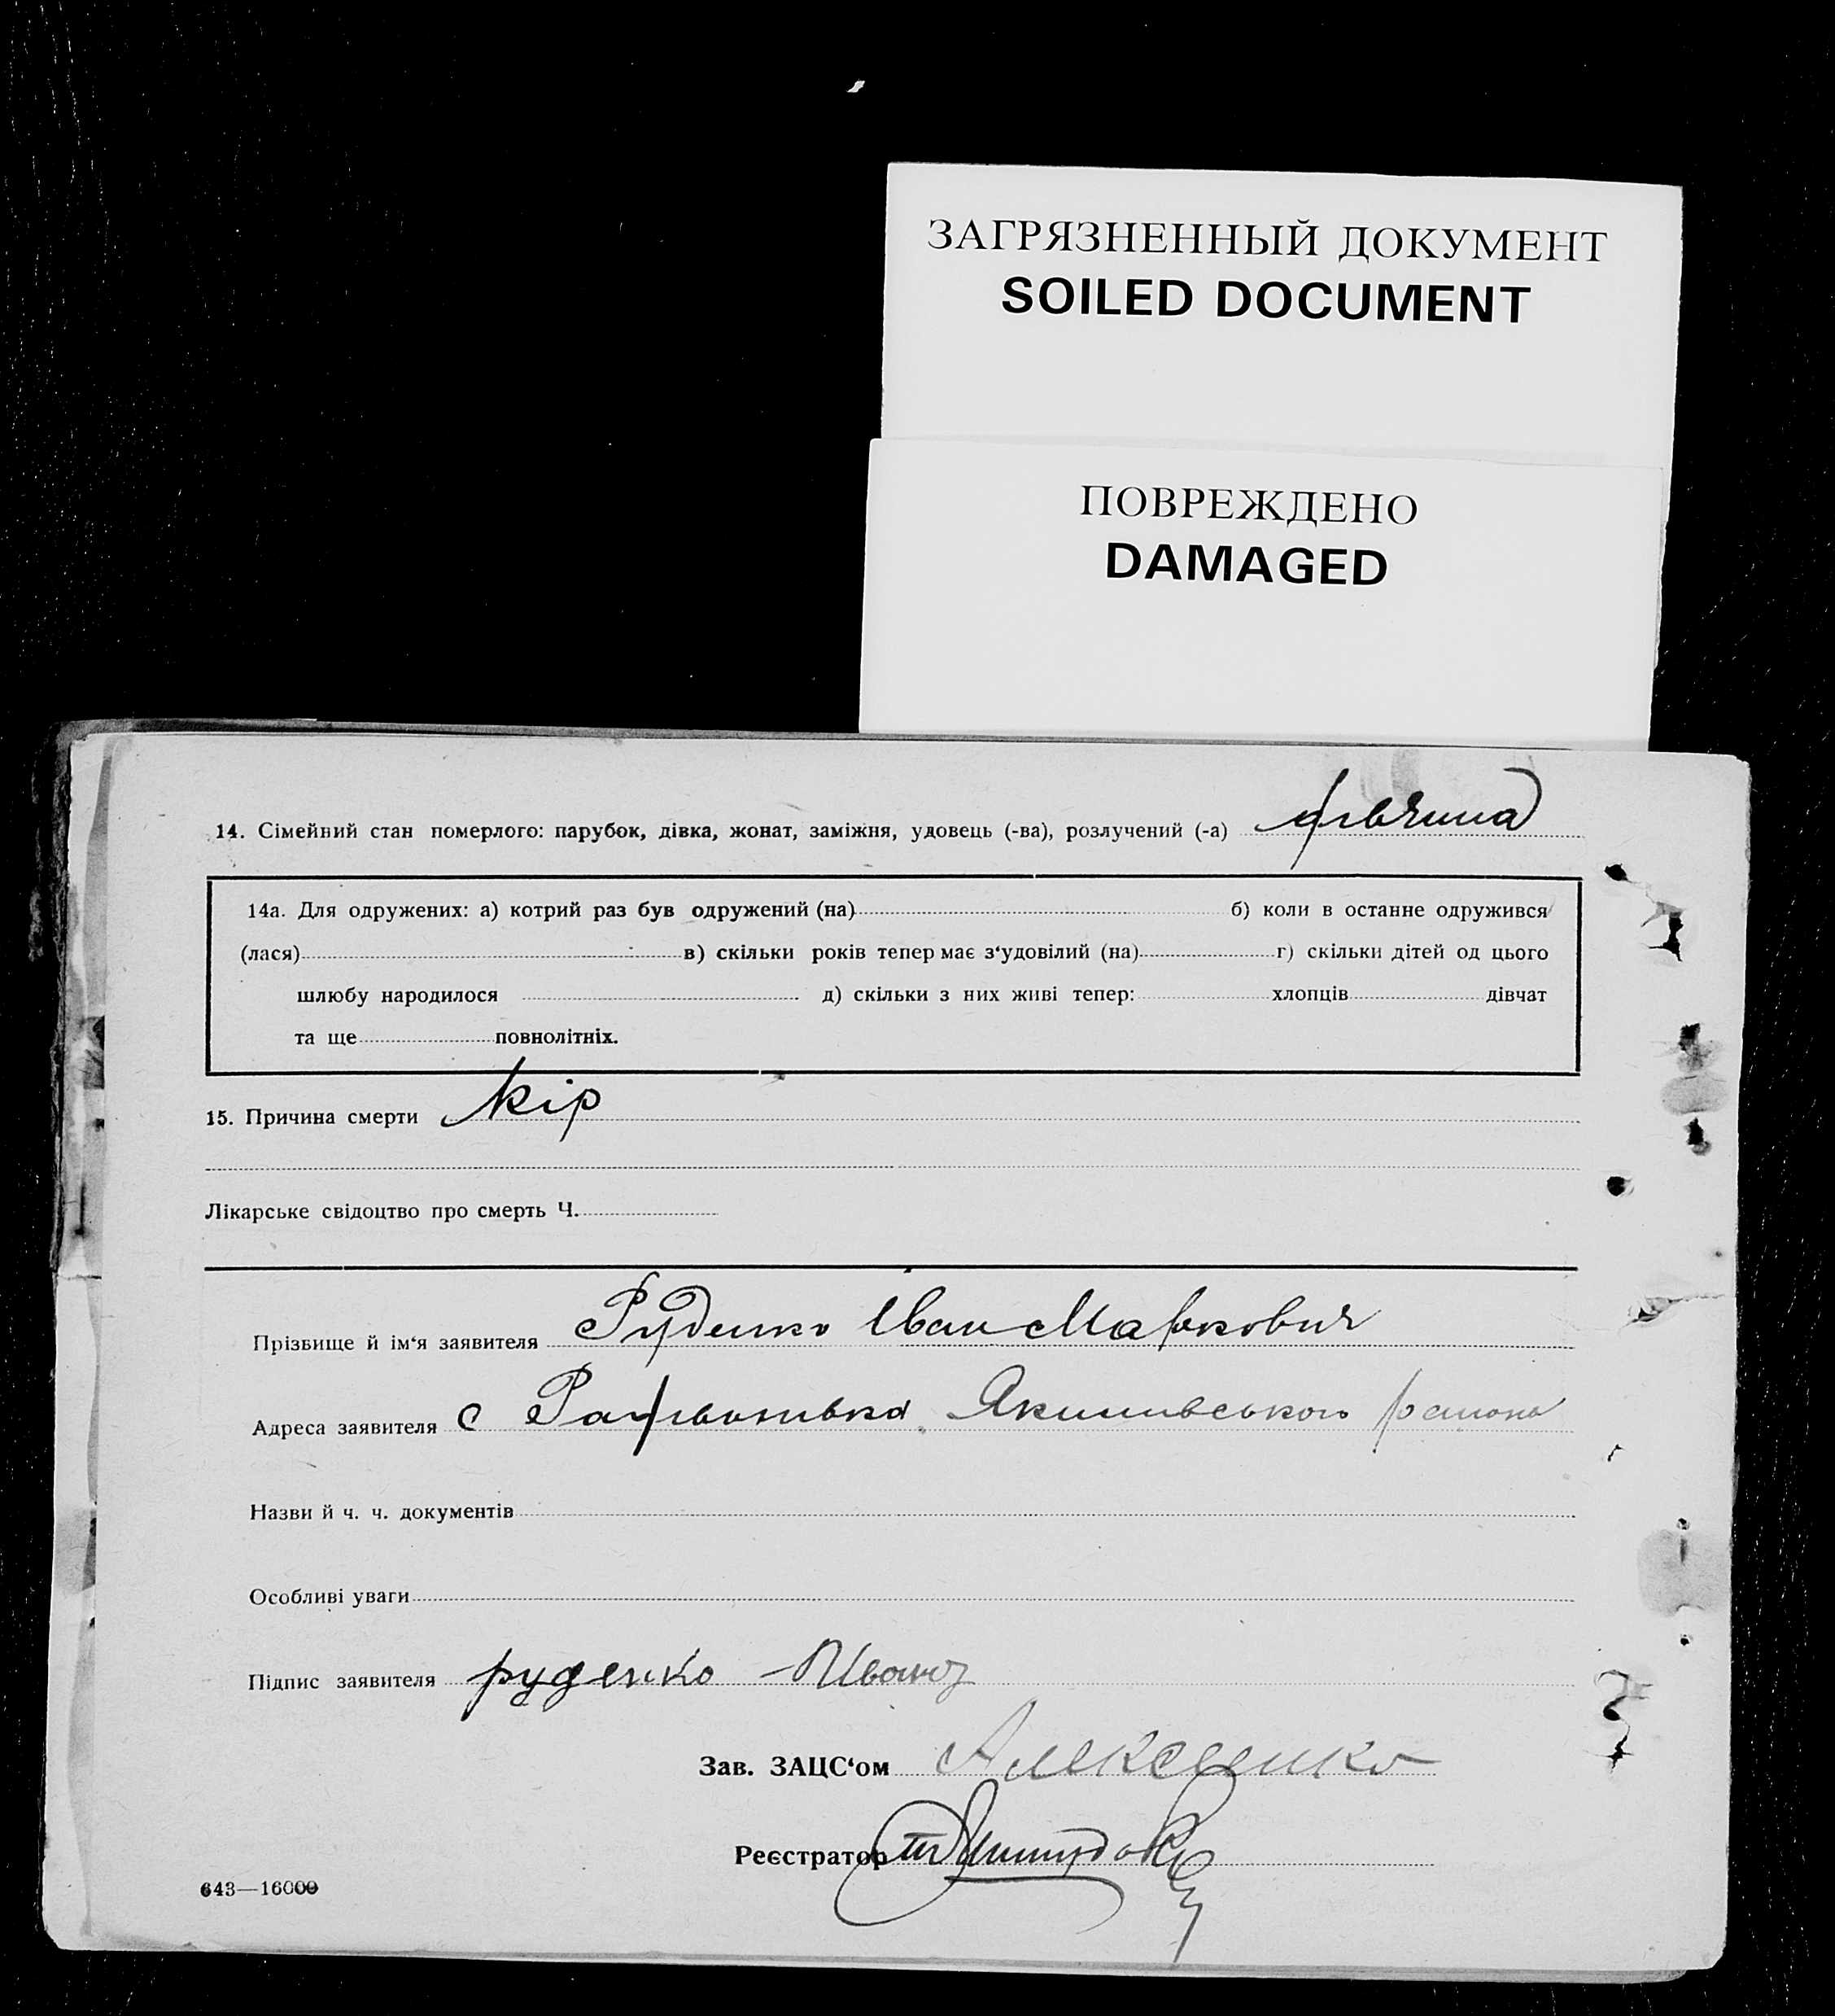 ЗАГРЯЗНЕННЫЙ ДОКУМЕНТ
SOILED DOCUMENT
ПОВРЕЖДЕНО
DAMAGED
14. Сімейний стан померлого: парубок, дівка, жонат, заміжня, удовець (-ва), розлучений (-а) дівчина
14а. Для одружених: а) котрий раз був одружений (на) б) коли в останне одружився
(лася) в) скільки років тепер має з‘удовілий (на) г) скільки дітей од цього
шлюбу народилося д) скільки з них живі тепер: хлопців дівчат
та ще повнолітніх.
15. Причина смерти кір
Лікарське свідоцтво про смерть Ч.
Прізвище й ім‘я заявителя Руденко Іван Маркович
Адреса заявителя с Радівонівка Якимівського району
Назви й ч. ч. документів
Особливі уваги
Підпис заявителя руденко Иван
Зав. ЗАЦС‘ом Алексенко
Реєстратор
643—16000